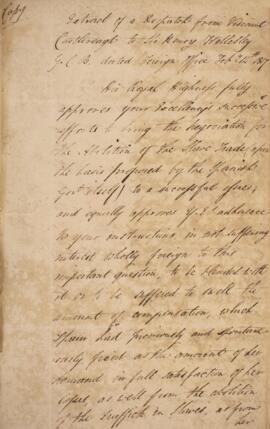 Copy
Extract of a Despatch from Viscount
Castlereagh to Sir Henry Wellesley
G.C.B. dated Foreign Office Feby 14th 1817
His Royal Highness fully
approves your Excellency's successive
efforts to bring the negociation for
the Abolition of the Slave Trade, upon
the basis proposed by the Spanish
Govt itself, to a successful close,
and equally approves Y.E. adherence
to your instructions in not suffering
interest wholly foreign to this
important question, to be blended with
it or to be suffered to swell the
amount of compensation, which
Spain had previously and
fixed as the amount of her
demand in full satisfaction of her
as well from the abolition
of the traffick in Slaves, as from
her